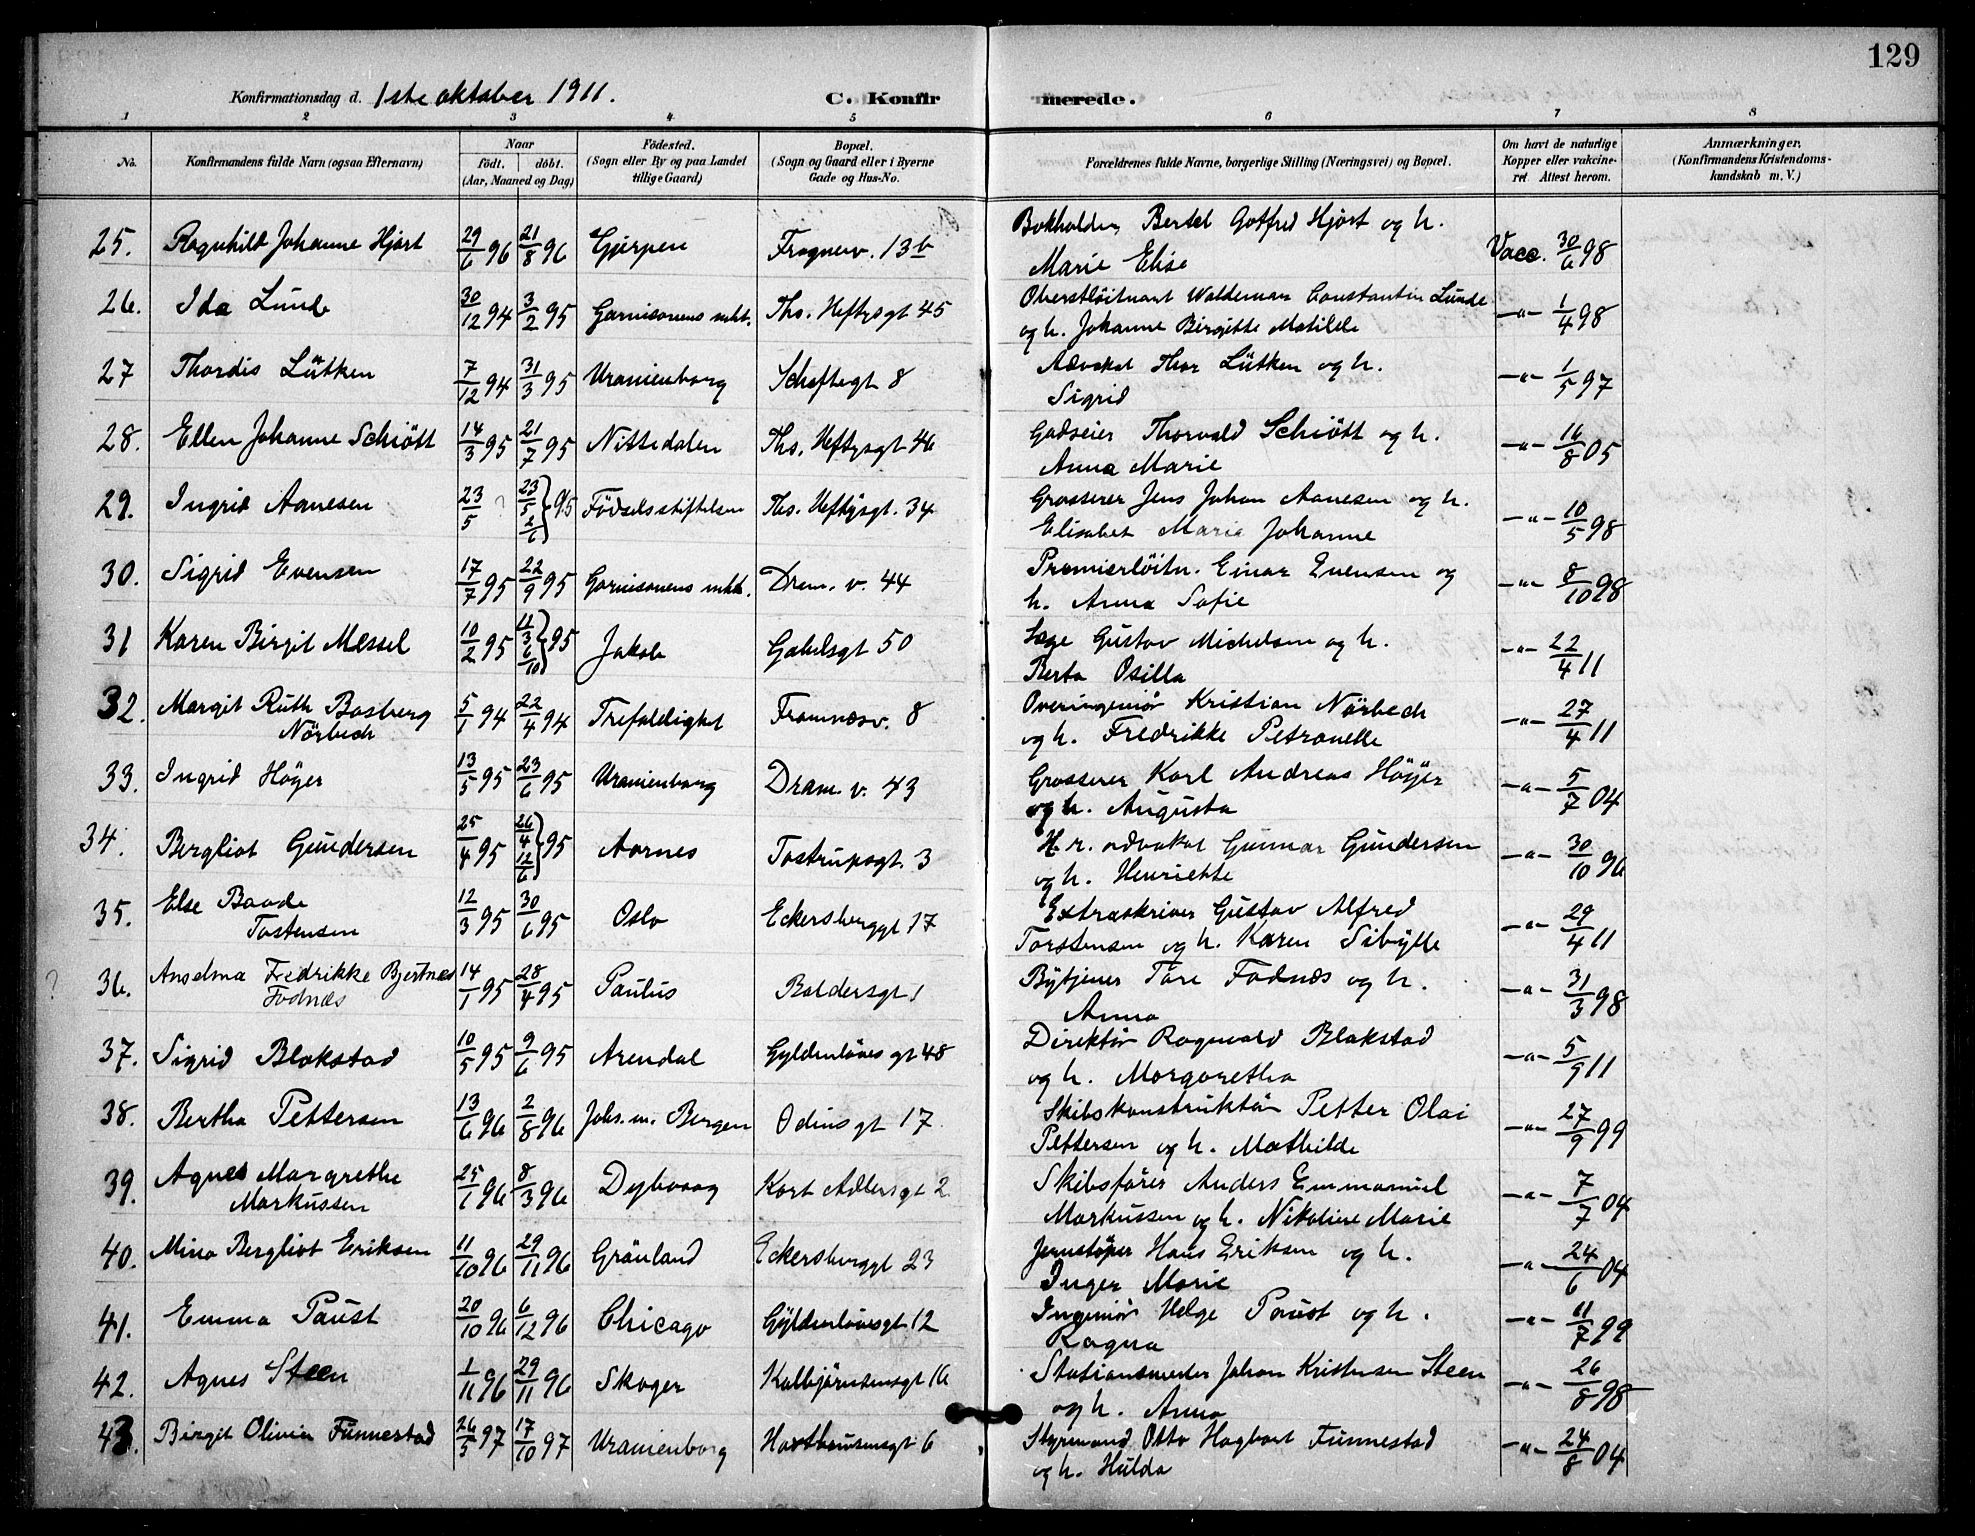 129
Konfirmationsdag d. 1ste oktober 1911. C. Konfirmerede.
1 2 3 4 5 6 7 8
No. Konfirmandens fulde Navn (ogsaa Efternavn) Naar født. døbt. (Aar, Maaned og Dag) Fødested. (Sogn eller By og paa Landet tillige Gaard) Bopæl. (Sogn og Gaard eller i Byerne Gade og Hus-No. Forældrenes fulde Navne, borgerlige Stilling (Næringsvei) og Bopæl. Om havt de naturlige Kopper eller vaccineret Attest herom. Anmærkninger. (Konfirmandens Kristendomskundskab m. V.)
25. Ragnhild Johanne Hjort 29/6 96 21/8 96 Gjerpen Frognerv. 13b Bokholder Bertel Gotfred Hjort og h. Vacc. 30/6 98
Marie Elise
26. Ida Lunde 30/12 94 3/2 95 Garnisonens mht. Ths. Heftysgt 45 Oberstløitnant Waldemar Constantin Lunde -"- 1/4 98
og h. Johanne Birgitte Matilde
27 Thordis Lütken 7/12 94 31/3 95 Uranienborg Schaftegt 8 Advokat Thor Lütken og h. -"- 1/5 97
Sigrid
28. Ellen Johanne Schiött 14/3 95 21/7 95 Nittedalen Ths. Heftysgt 46 Godseier Thorvald Schiött og h. -"- 16/8 05
Anna Marie
29. Ingrid Aanesen 23/5 ? 23/5 2/6 } 95 Födselsstiftelsen Ths. Heftysgt. 34 Grosserer Jens Johan Aanesen og h. -"- 10/5 98
Elisabet Maria Johanne
30. Sigrid Evensen 17/7 95 22/9 95 Garnisonens mht. Dram. v. 44 Premierløitn. Einar Evensen og -"- 8/10 98
h. Anna Sofie
31 Karen Birgit Messel 10/2 95 11/3 6/10 } 95 Jakob Gabelsgt 50 Gustav Michelsen og h. -"- 22/4 11
Berta Osilla
32. Margit Ruth Bosberg 5/1 94 22/4 94 Trefoldighet Framnæsv. 8 Overingeniør Kristian Nörbech -"- 27/4 11
Nörbech og h. Fredrikke Petronelle
33. Ingrid Höyer 13/5 95 23/6 95 Uranienborg Dram. v. 43 Grosserer Karl Andreas Höyer -"- 5/7 04
og h. Augusta
34. Bergliot Gundersen 25/4 95 26/4 12/6 } 95 Aarnes Tostrupsgt. 3 H.r. advokat Gunnar Gundersen -"- 30/10 96
og h. Henriette
35. Else Baade 12/3 95 30/6 95 Oslo Eckersberggt 17 Extraskriver Gustav Alfred -"- 29/4 11
Tostensen Torstensen og h. Karen Sibylle
? 36. Anselma Fredrikke Bjertnæs 14/1 95 28/4 95 Paulus Baldersgt 1 Bytjener Tore Fodnæs og h. -"- 31/3 98
Fodnæs Anna
37. Sigrid Blakstad 10/5 95 9/6 95 Arendal Gyldenløves gt 48 Direktør Ragnvald Blakstad -"- 5/9 11
og h. Margaretha
38. Bertha Pettersen 13/6 96 2/8 96 Johs. m. Bergen Odinsgt 17. Skibskonstruktör Petter Olai -"- 27/9 99
Pettersen og h. Mathilde
39. Agnes Margrethe 25/1 96 8/3 96 Dybvaag Kort Adlersgt 2 Skibsfører Anders Emmanuel -"- 7/7 04
Markussen Markussen og h. Nikoline Marie
40. Mina Bergliot Eriksen 11/10 96 29/11 96 Grönland Eckersberggt 23 Jernstøper Hans Eriksen og h. -"- 24/6 04
Inger Marie
41. Emma Paust 20/10 96 6/12 96 Chicago Gyldenløvesgt. 12 Ingeniør Helge Paust og h. -"- 11/7 99
Ragna
42. Agnes Steen 1/11 96 29/11 96 Skoger Kalbjörnsensgt 16 Stationsmester Johan Kristensen Steen -"- 26/8 98
og h. Anna
43. Birgit Olivia Funnestad 26/5 97 17/10 97 Uranienborg Harthausensgt 6 Styrmand Otto Hagbart Funnestad -"- 24/8 04
og h. Hulda